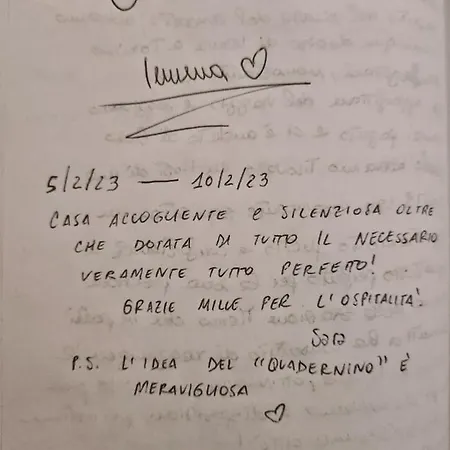 5/2/23 — 10/2/23
CASA ACCOGLIENTE E SILENZIOSA OLTRE
CHE DOTATA DI TUTTO IL NECESSARIO
VERAMENTE TUTTO PERFETTO!
GRAZIE MILLE PER L'OSPITALITA'.
Sara
P.S. L'IDEA DEL "QUADERNINO" È
MERAVIGLIOSA
♡